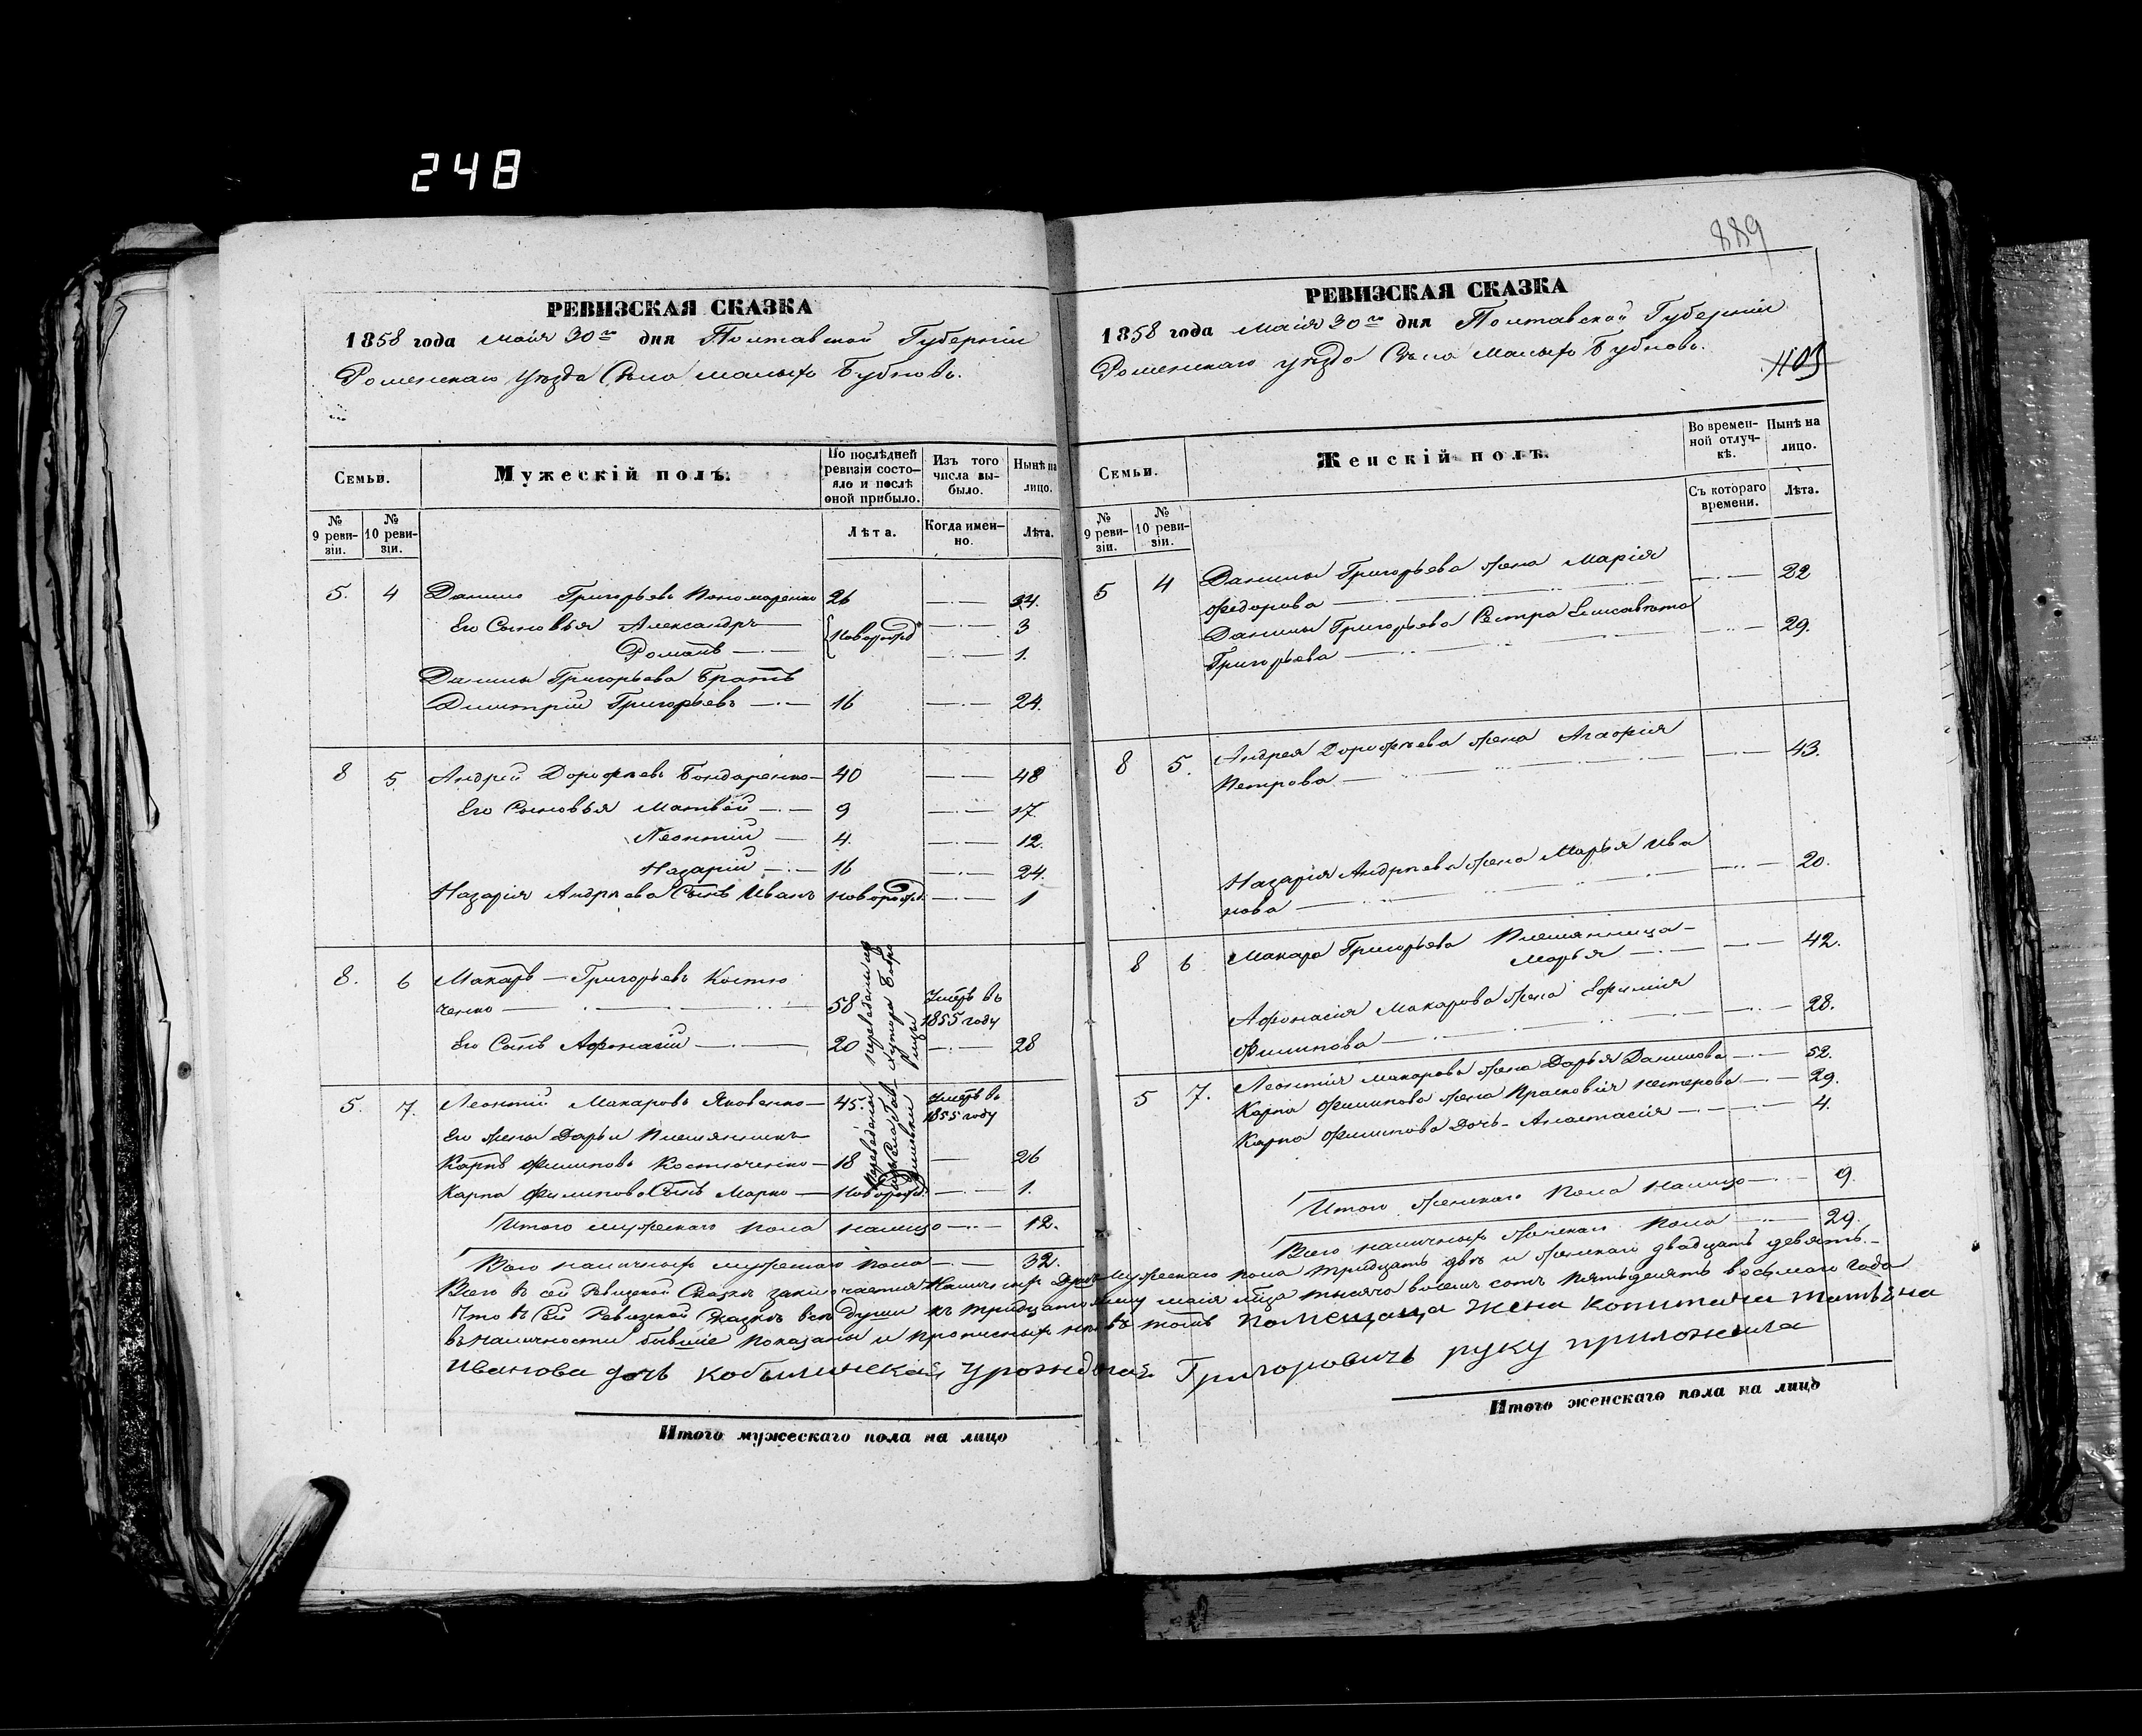 248
889
РЕВИЗСКАЯ СКАЗКА
1858 года маія 30го дня Полтавской Губерніи
Роменскаго уѣзда Села малыхъ Бубновъ.
Семьи.
Мужескій полъ.
По послѣдней ревизіи состояло и послѣ оной прибыло.
Изъ того числа выбыло.
Нынѣ на лицо.
№ 9 ревизіи.
№ 10 ревизіи.
Лѣта.
Когда именно.
Лѣта.
5. 4 Данило Григорьевъ Пономаренко 26 34.
Его Сыновья Александръ новорожд 3
Романъ 1.
Данилы Григорьева Братъ
Димитрій Григорьевъ 16 24.
8 5 Андрей Дорофѣевъ Бондаренко 40 48
Его Сыновья Матвѣй 9 17.
Леонтій 4. 12.
Назарій 16 24.
Назарія Андрѣева Сынъ Иванъ новорожд. 1
8. 6 Макаръ Григорьевъ Костю
ченко 58 Умеръ въ 1855 году
Его Сынъ Афонасій 20 28
5. 7. Леонтій Макаровъ Яковенко 45. Умеръ въ 1855 году
Его жены Дарьи Племянникъ
Карпъ Филиповъ Костюченко 18 26
Карпа Филипова Сынъ Марко Новорожд. 1.
Итого мужескаго пола налицо 12.
Всего наличныхъ мужескаго пола 32.
РЕВИЗСКАЯ СКАЗКА
1858 года маія 30го дня Полтавской Губерніи
Роменскаго уѣзда Села малыхъ Бубновъ.
1103
Семьи.
Женскій полъ.
Во временной отлучкѣ.
Нынѣ на лицо.
№ 9 ревизіи.
№ 10 ревизіи.
Съ котораго времени.
Лѣта.
5 4 Данилы Григорьева жена Марія
Федорова 22
Данилы Григорьева Сестра Елисавета
Григорьева 29.
8 5. Андрея Дорофѣева жена Агафія
Петрова 43.
Назарія Андрѣева жена Марья Ива
нова 20.
8 6 Макара Григорьева Племянница
Марья 42.
Афонасія Макарова жена Ефимія
Филипова 28.
5 7. Леонтія макарова жена Дарья Данилова 52.
Карпа Филипова жена Прасковія нестерова 29.
Карпа Филипова Дочь Анастасія 4.
Итого женскаго пола налицо 9.
Всего наличныхъ женскаго пола 29.
Всего въ сей Ревизской Сказкѣ заключается Наличныхъ Душъ мужескаго пола тридцать двѣ и женскаго двадцать девять.
Что въ Сей Ревизской Сказкѣ всѣ души къ тридцатому маія мѣца тысяча восемь сотъ пятьдесятъ восьмаго года
въ наличности бывшіе показаны и прописныхъ нѣтъ въ томъ помещица жена Копитана татьяна
Иванова дочь кобылинская урожденая Григоровичъ руку приложила
Итого мужескаго пола на лицо
Итого женскаго пола на лицо